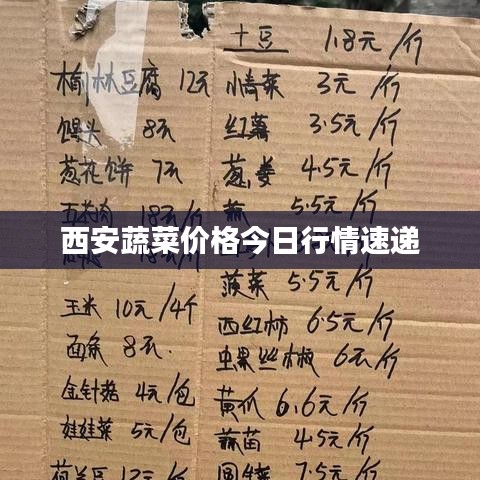 榆林豆腐 12元
馒头 8元
葱花饼 7元
五花肉 18元/斤
玉米 10元/4个
面条 8元.
金针菇 4元/包
娃娃菜 5元/包
荷兰豆 12元
土豆 1.8元/斤
小青菜 3元/斤
红薯 3.5元/斤
葱,姜 4.5元/斤
5.5元/斤
西安蔬菜价格今日行情速递
菠菜 5.5元/斤
西红柿 6.5元/斤
螺丝椒 6元/斤
黄瓜 6.6元/斤
蒜苗 4.5元/斤
7.5元/斤